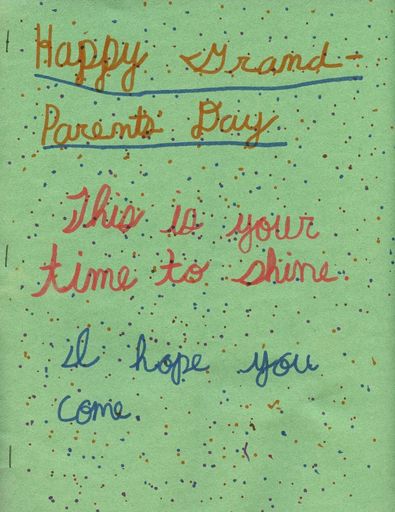 Happy Grand-
Parents Day
This is your
time to shine.
I hope you
come.